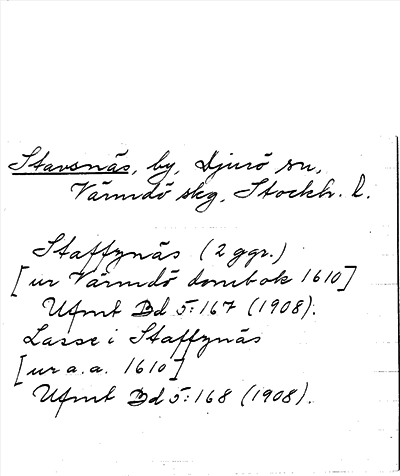 Stavsnäs, by, Djurö sn,
Värmdö skg, Stockh. l.
Staffynäs (2 ggr.)
[ur Värmdö dombok 1610]
Ufmt Bd 5:167 (1908).
Lasse i Staffynäs
[ur a.a. 1610]
Ufmt Bd 5:168 (1908).